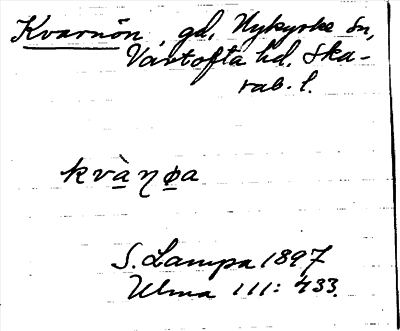 Kvarnön, gd, Nykyrke sn,
Vartofta hd. Ska-
rab. l.
kvàŋøa
S. Lampa 1897
Ulma 111: 433.